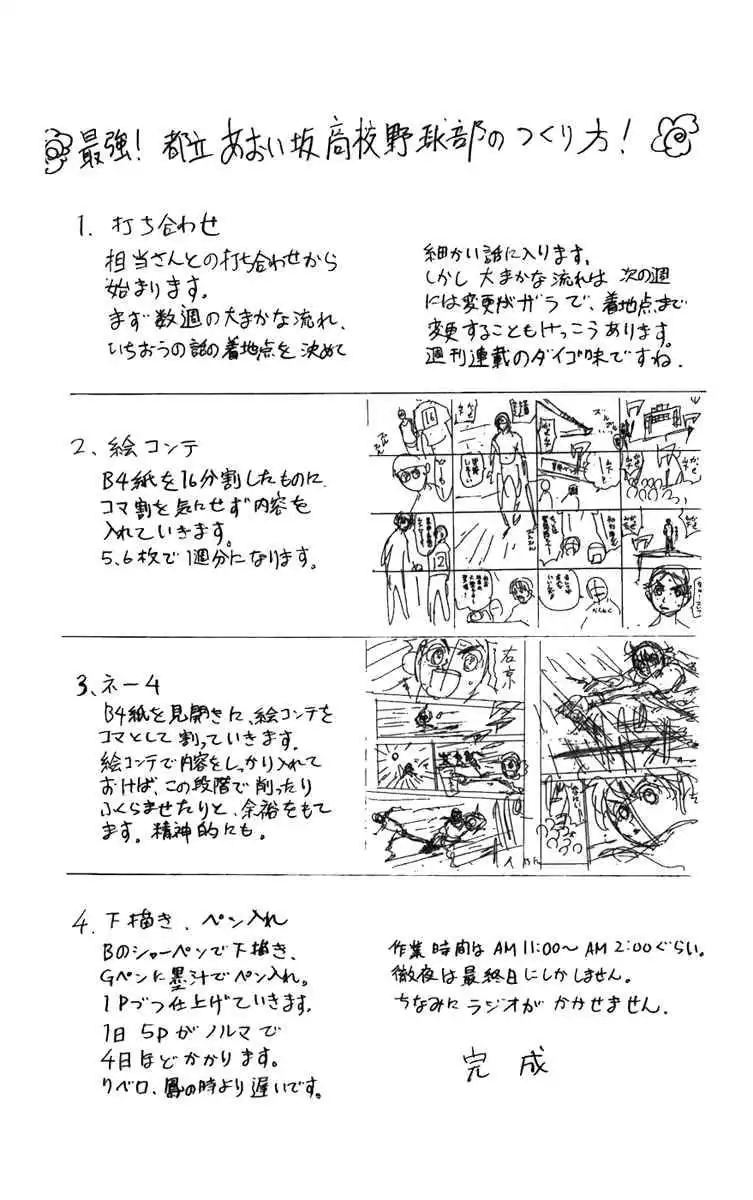 最強！都立あおい坂高校野球部のつくり方！
1. 打ち合わせ
担当さんとの打ち合わせから
始まります。
まず数週の大まかな流れ、
いちおうの話の着地点を決めて
細かい話に入ります。
しかし大まかな流れは次の週
には変更がザラで、着地点まで
変更することもけっこうあります。
週刊連載のダイゴ味ですね.
2、絵コンテ
B4紙を16分割したものに、
コマ割を気にせず内容を
入れていきます。
5、6枚で1週分になります。
3、ネーム
B4紙を見開きに、絵コンテを
コマとして割っていきます。
絵コンテで内容をしっかり入れて
おけば、この段階で削ったり
ふくらませたりと、余裕をもて
ます。精神的にも。
右京
4. 下描き、ペン入れ
Bのシャーペンで下描き、
Gペンに墨汁でペン入れ。
1Pづつ仕上げていきます。
1日5Pがノルマで
4日ほどかかります。
リベロ、鳳の時より遅いです。
作業時間はAM11:00〜AM2:00ぐらい。
徹夜は最終日にしかしません。
ちなみにラジオがかかせません.
完成